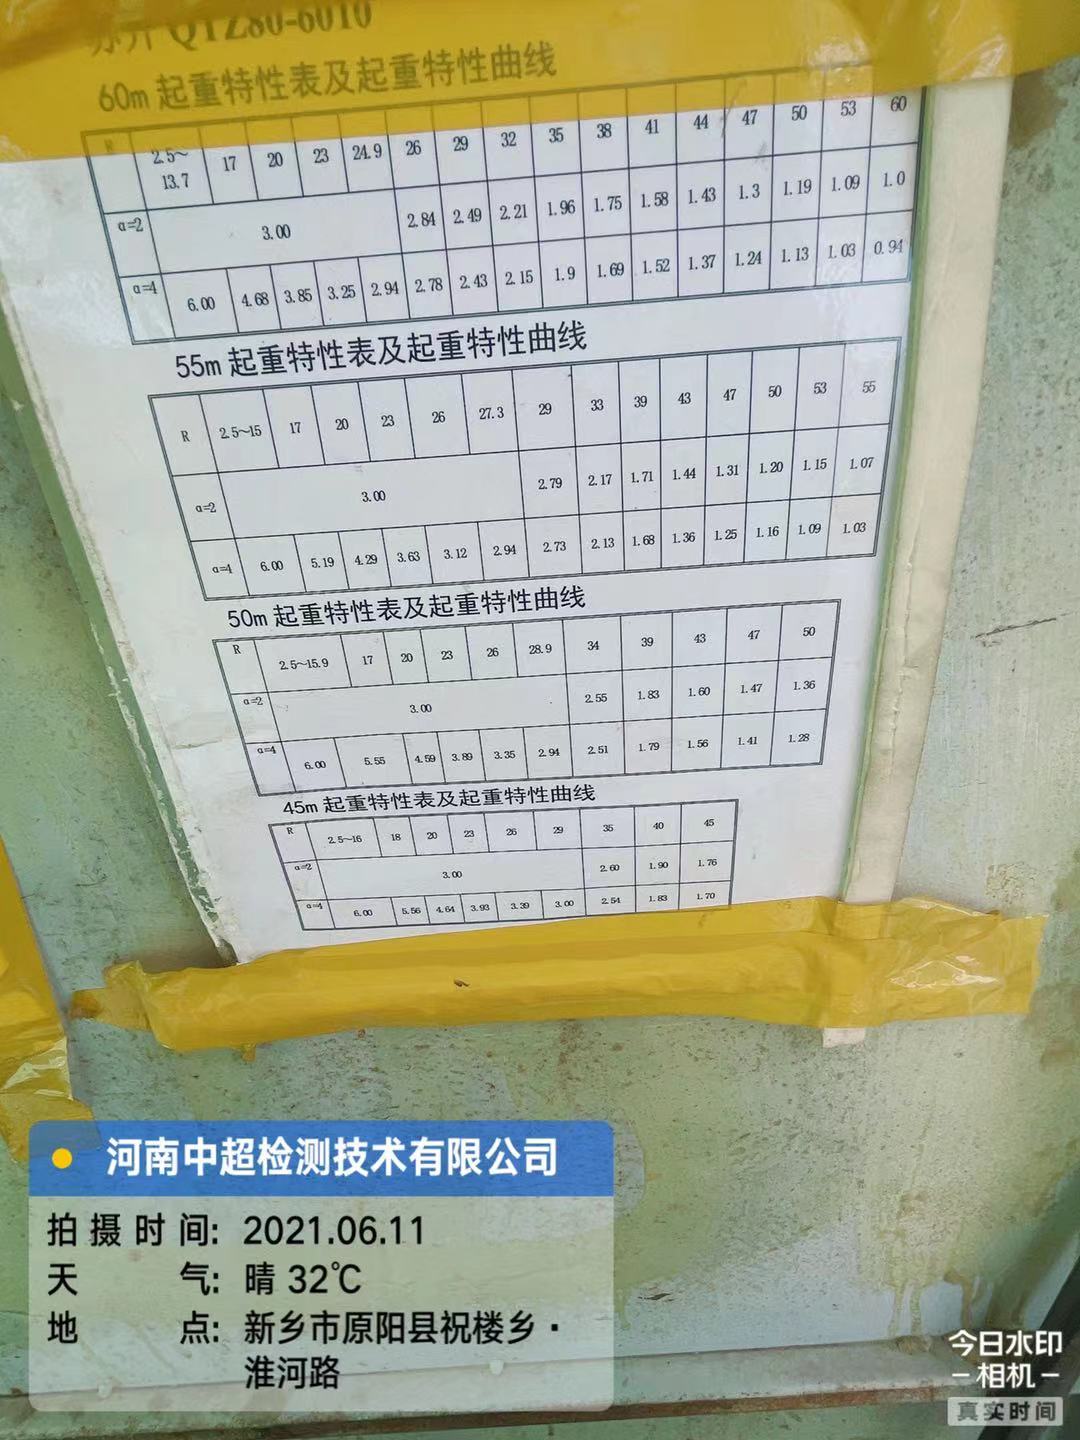 苏升 QTZ80-6010
60m 起重特性表及起重特性曲线
R 2.5~13.7 17 20 23 24.9 26 29 32 35 38 41 44 47 50 53 60
α=2 3.00 2.84 2.49 2.21 1.96 1.75 1.58 1.43 1.3 1.19 1.09 1.0
α=4 6.00 4.68 3.85 3.25 2.94 2.78 2.43 2.15 1.9 1.69 1.52 1.37 1.24 1.13 1.03 0.94
55m 起重特性表及起重特性曲线
R 2.5~15 17 20 23 26 27.3 29 33 39 43 47 50 53 55
α=2 3.00 2.79 2.17 1.71 1.44 1.31 1.20 1.15 1.07
α=4 6.00 5.19 4.29 3.63 3.12 2.94 2.73 2.13 1.68 1.36 1.25 1.16 1.09 1.03
50m 起重特性表及起重特性曲线
R 2.5~15.9 17 20 23 26 28.9 34 39 43 47 50
α=2 3.00 2.55 1.83 1.60 1.47 1.36
α=4 6.00 5.55 4.59 3.89 3.35 2.94 2.51 1.79 1.56 1.41 1.28
45m 起重特性表及起重特性曲线
R 2.5~16 18 20 23 26 29 35 40 45
α=2 3.00 2.60 1.90 1.76
α=4 6.00 5.56 4.64 3.93 3.39 3.00 2.54 1.83 1.70
河南中超检测技术有限公司
拍摄时间: 2021.06.11
天气: 晴 32℃
地点: 新乡市原阳县祝楼乡·
淮河路
今日水印
-相机-
真实时间